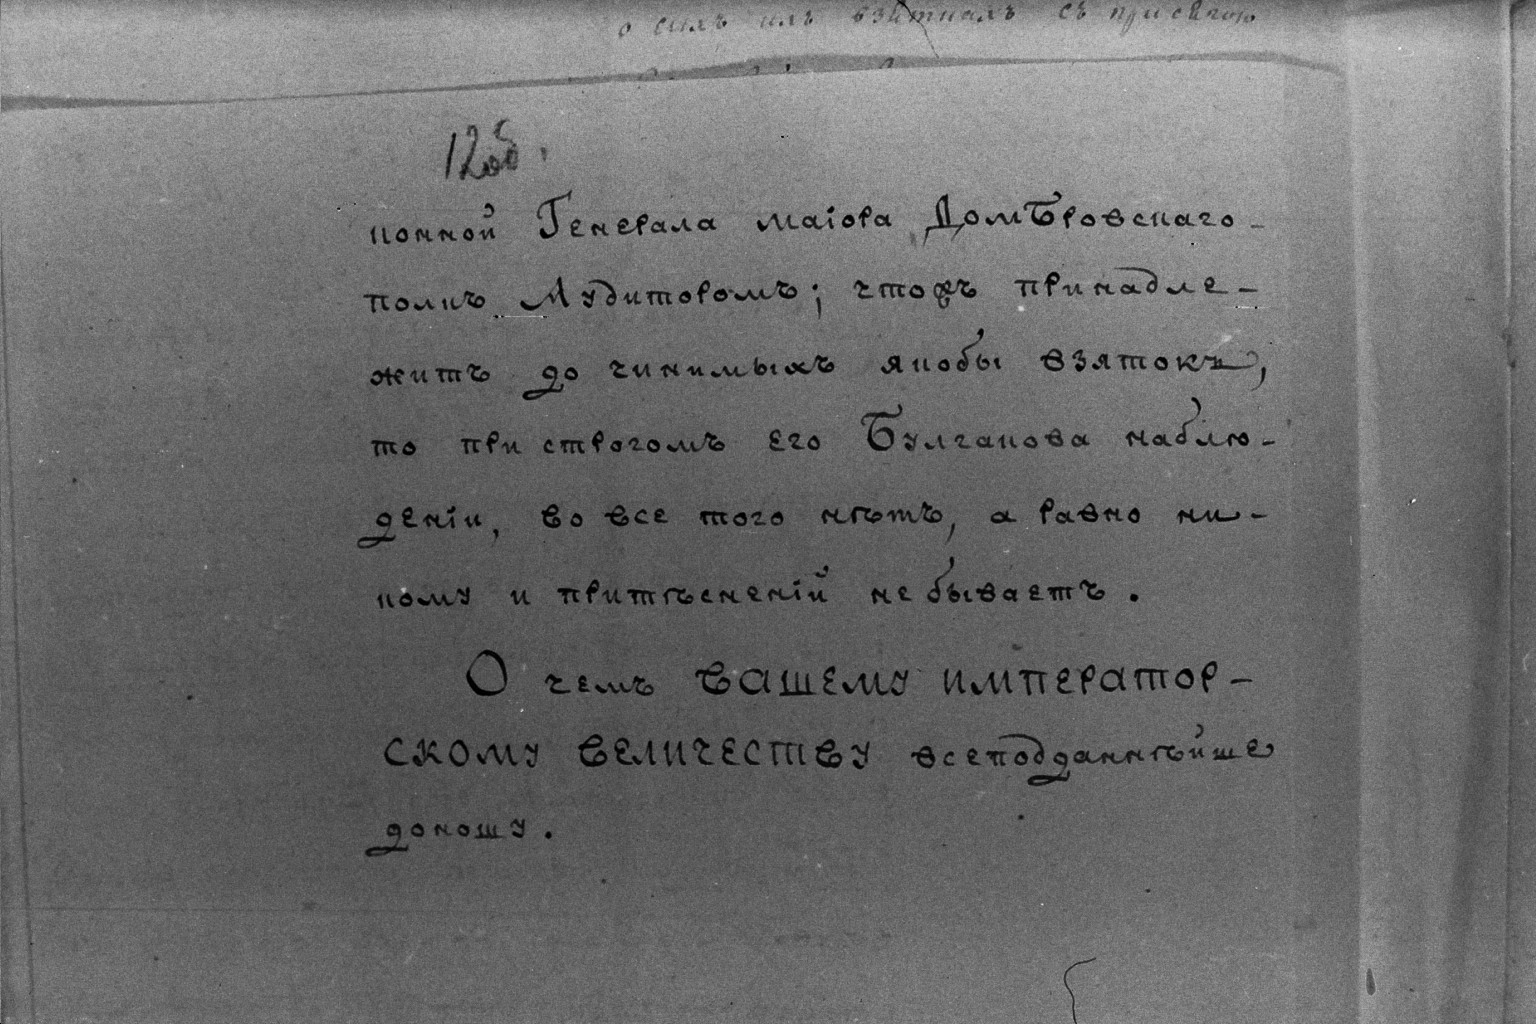 о сихъ взяткахъ съ присягою
12об.
конной Генерала маіора Домбровскаго
полкъ Аудиторомъ; чтожъ принадле-
житъ до чинимыхъ якобы взятокъ,
то при строгомъ его Булгакова наблю-
деніи, во все того нѣтъ, а равно ни-
кому и притѣсненій не бываетъ.
О чемъ ВАШЕМУ ИМПЕРАТОР-
СКОМУ ВЕЛИЧЕСТВУ всеподданнѣйше
доношу.